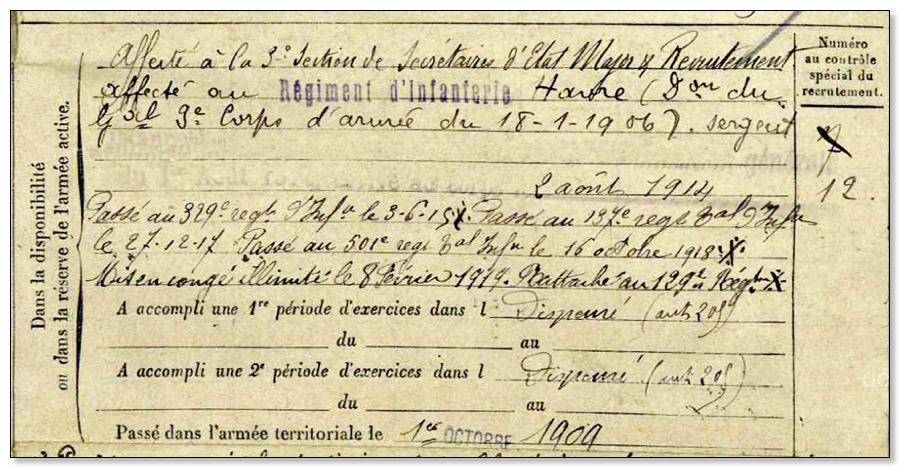 Affecté à la 3e Section de Secrétaires d'Etat Major & Recrutement
affecté au Régiment d'Infanterie Havre (Don du
Gal 3e Corps d'armée du 18-1-1906). sergent
2 août 1914
Passé au 329e regt d'Infie le 3-6-15. Passé au 137e regt d'Infie
le 27-12-17 Passé au 501e regt Infie le 16 octobre 1918
Mis en congé illimité le 8 février 1919. Rattaché au 129e Régt
A accompli une 1re période d'exercices dans l Dispensé (art 20)
du au
A accompli une 2e période d'exercices dans l Dispensé (art 20)
du au
Passé dans l'armée territoriale le 1er OCTOBRE 1909
Dans la disponibilité
ou dans la réserve de l'armée active.
Numéro
au contrôle
spécial du
recrutement.
12.